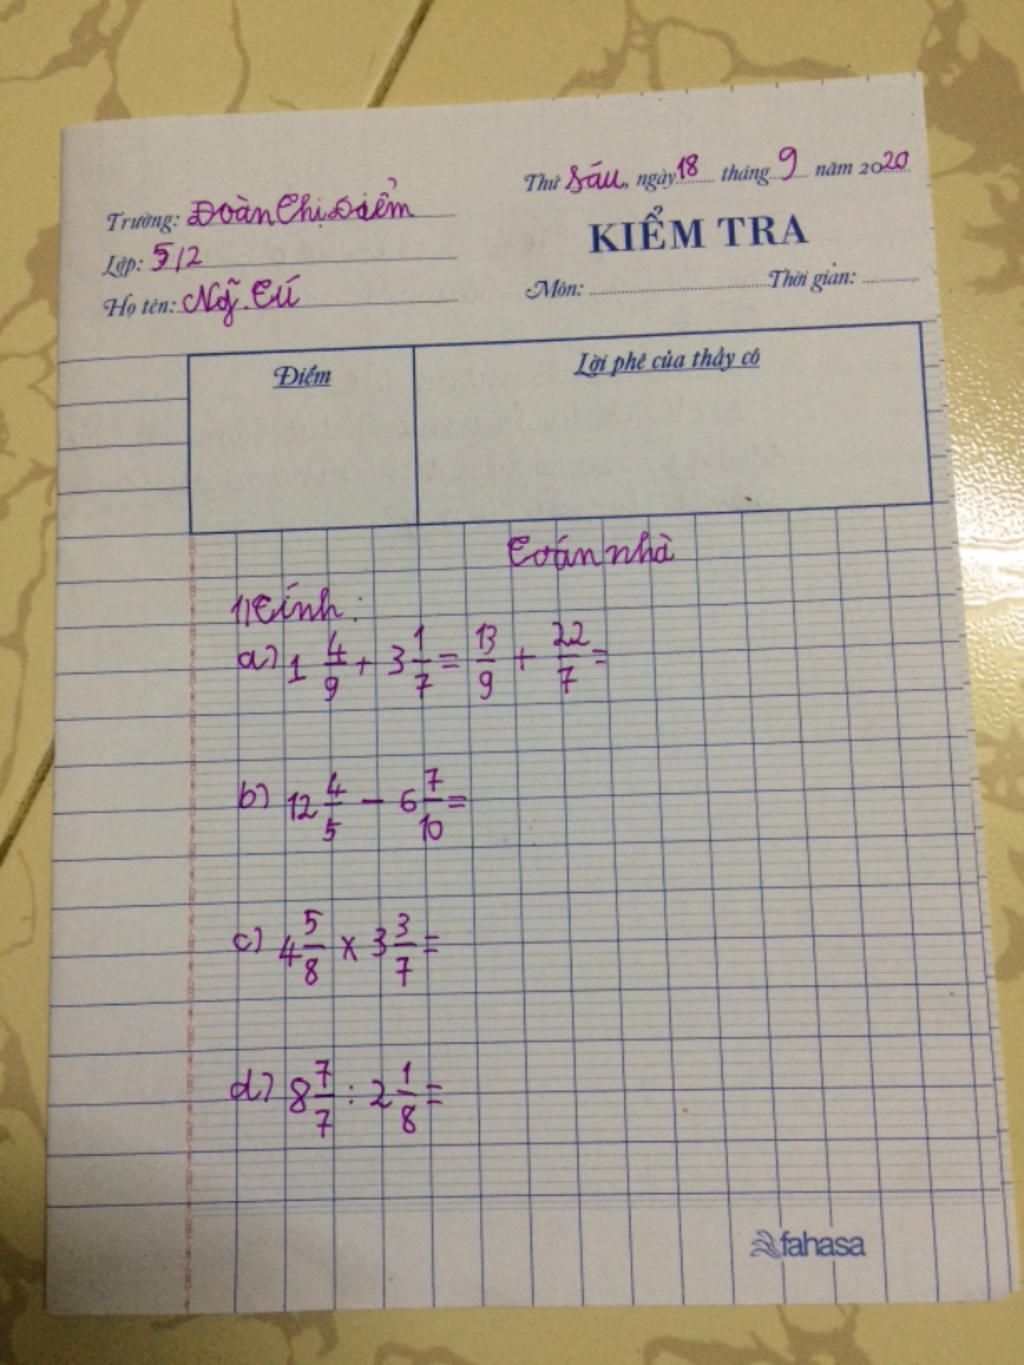 Thứ Sáu, ngày 18 tháng 9 năm 2020
Trường: Đoàn Thị Điểm
KIỂM TRA
Lớp: 5/2
Môn: Thời gian:
Họ tên: Ng̃. Tú
Điểm
Lời phê của thầy cô
Toán nhà
1) Tính:
a) 1 4/9 + 3 1/7 = 13/9 + 22/7 =
b) 12 4/5 - 6 7/10 =
c) 4 5/8 x 3 3/7 =
d) 8 7/7 : 2 1/8 =
fahasa